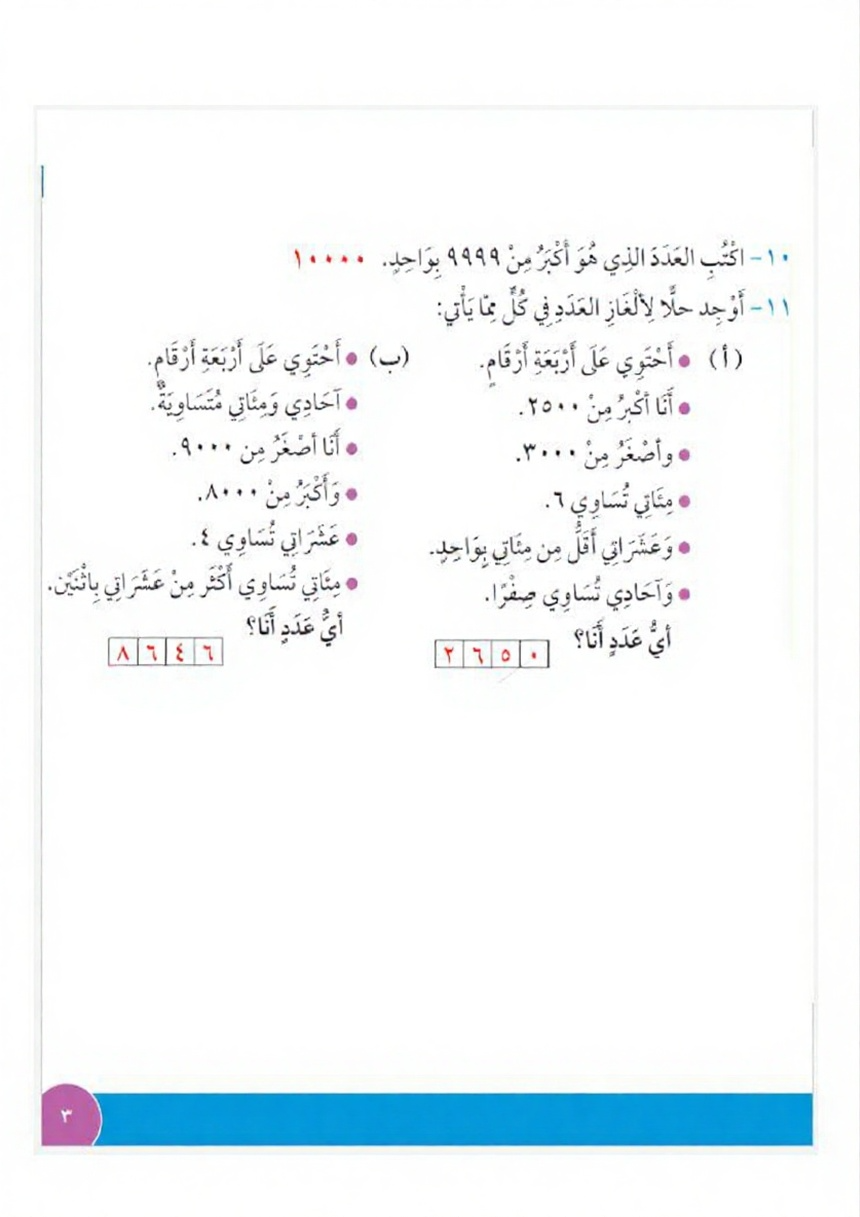 ١٠- اكْتُبِ العَدَدَ الذِي هُوَ أَكْبَرُ مِنْ ٩٩٩٩ بِوَاحِدٍ. ١٠٠٠٠
١١- أَوْجِد حلًّا لِألْغَازِ العَدَدِ فِي كُلٍّ مِمّا يَأْتِي:
(أ) • أَحْتَوِي عَلَى أَرْبَعَةِ أَرْقَامٍ.
• أَنَا أكْبرُ مِنْ ٢٥٠٠.
• وأصْغَرُ مِنْ ٣٠٠٠.
• مِئَاتِي تُسَاوِي ٦.
• وَعَشَرَاتِي أَقَلُّ مِن مِئَاتِي بِوَاحِدٍ.
• وَآحَادِي تُسَاوِي صِفْرًا.
أيُّ عَدَدٍ أَنَا؟
٢ ٦ ٥ ٠
(ب) • أَحْتَوِي عَلَى أَرْبَعَةِ أَرْقَامٍ.
• آحَادِي وَمِئَاتِي مُتَسَاوِيَةٌ.
• أَنَا أصْغَرُ مِن ٩٠٠٠.
• وَأَكْبَرُ مِنْ ٨٠٠٠.
• عَشَرَاتِي تُسَاوِي ٤.
• مِئَاتِي تُسَاوِي أَكْثَر مِنْ عَشَرَاتِي بِاثْنَيْن.
أيُّ عَدَدٍ أَنَا؟
٨ ٦ ٤ ٦
٣